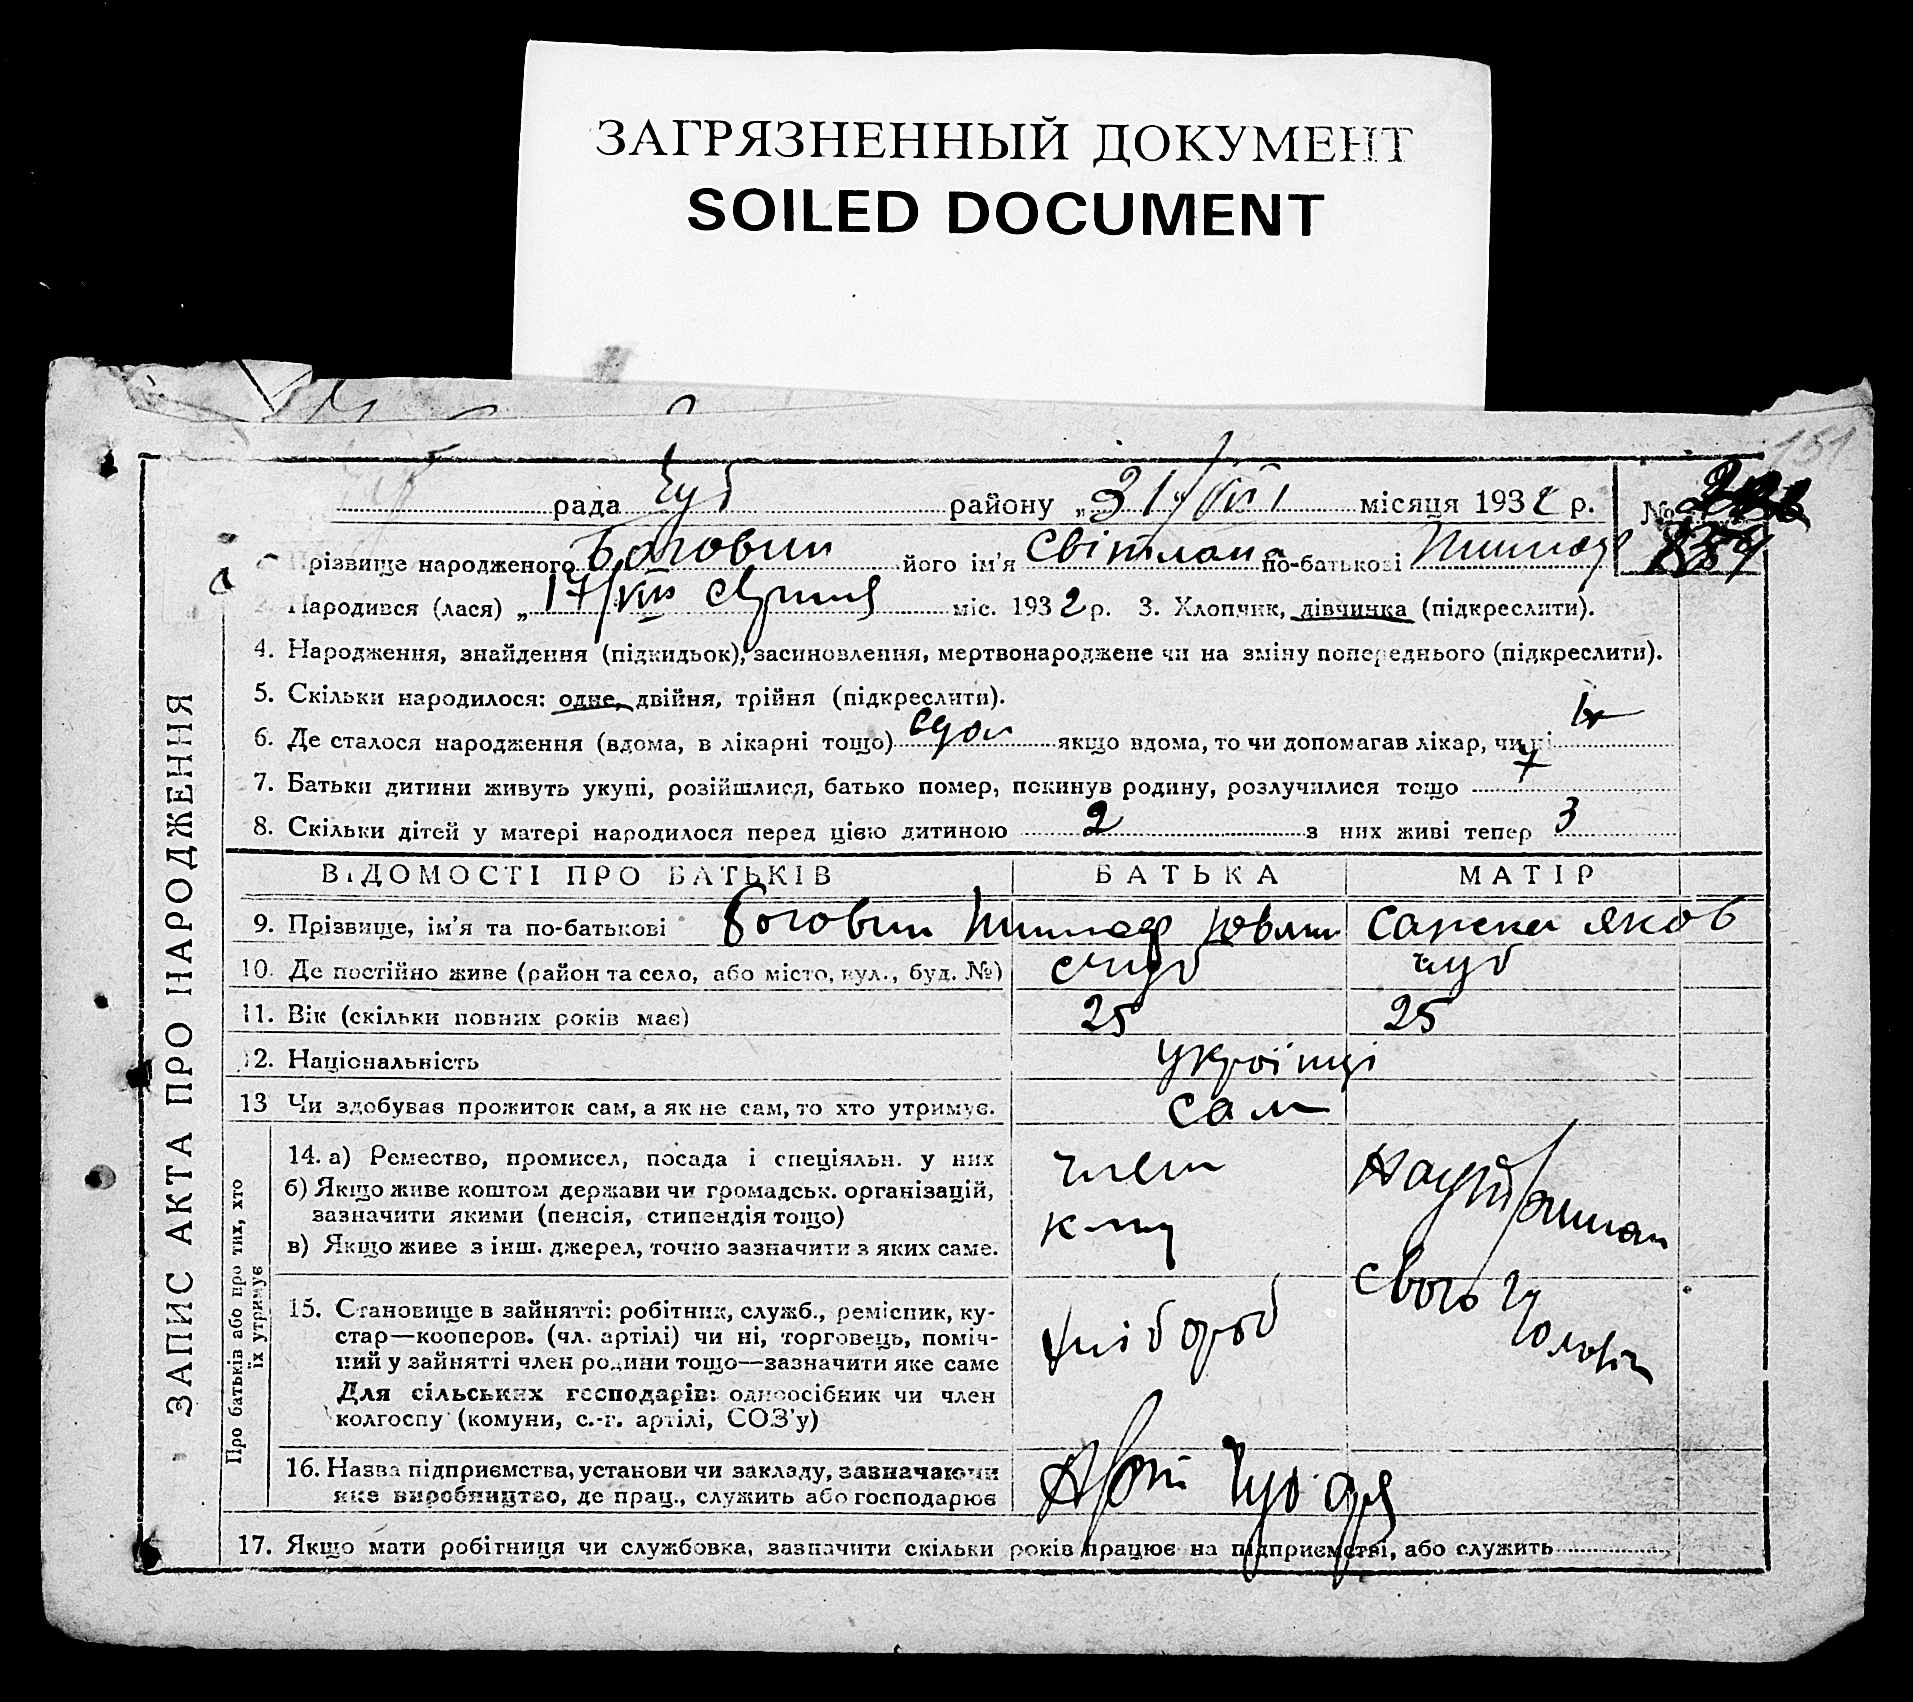 ЗАГРЯЗНЕННЫЙ ДОКУМЕНТ
SOILED DOCUMENT
151
рада Чуб району „31/VIII місяця 1932 р. №
різвище народженого Боговин його ім'я Світлана по-батькові
Народився (лася) „17/VIII серпня міс. 1932 р. 3. Хлопчик, дівчинка (підкреслити).
4. Народження, знайдення (підкидьок), засиновлення, мертвонароджене чи на зміну попереднього (підкреслити).
5. Скільки народилося: одне, двійня, трійня (підкреслити).
6. Де сталося народження (вдома, в лікарні тощо) якщо вдома, то чи допомагав лікар, чи ні
7. Батьки дитини живуть укупі, розійшлися, батько помер, покинув родину, розлучилися тощо
8. Скільки дітей у матері народилося перед цією дитиною 2 з них живі тепер 3
ВІДОМОСТІ ПРО БАТЬКІВ БАТЬКА МАТІР
9. Прізвище, ім'я та по-батькові Боговин Яков
10. Де постійно живе (район та село, або місто, вул., буд. №) Чуб
11. Вік (скільки повних років має) 25 25
12. Національність українці
13 Чи здобував прожиток сам, а як не сам, то хто утримує. сам
14. а) Ремество, промисел, посада і спеціяльн. у них член
б) Якщо живе коштом держави чи громадськ. організацій,
зазначити якими (пенсія, стипендія тощо)
в) Якщо живе з інш. джерел, точно зазначити з яких саме.
свого
15. Становище в зайнятті: робітник, служб., ремісник, ку-
стар—кооперов. (чл. артілі) чи ні, торговець, поміч-
ний у зайнятті член родини тощо—зазначити яке саме
Для сільських господарів: одноосібник чи член
колгоспу (комуни, с.-г. артілі, СОЗ'у)
16. Назва підприємства, установи чи закладу, зазначаючи
яке виробництво, де прац., служить або господарює
17. Якщо мати робітниця чи службовка, зазначити скільки років працює на підприємстві, або служить
ЗАПИС АКТА ПРО НАРОДЖЕННЯ
Про батьків або про тих, хто
їх утримує